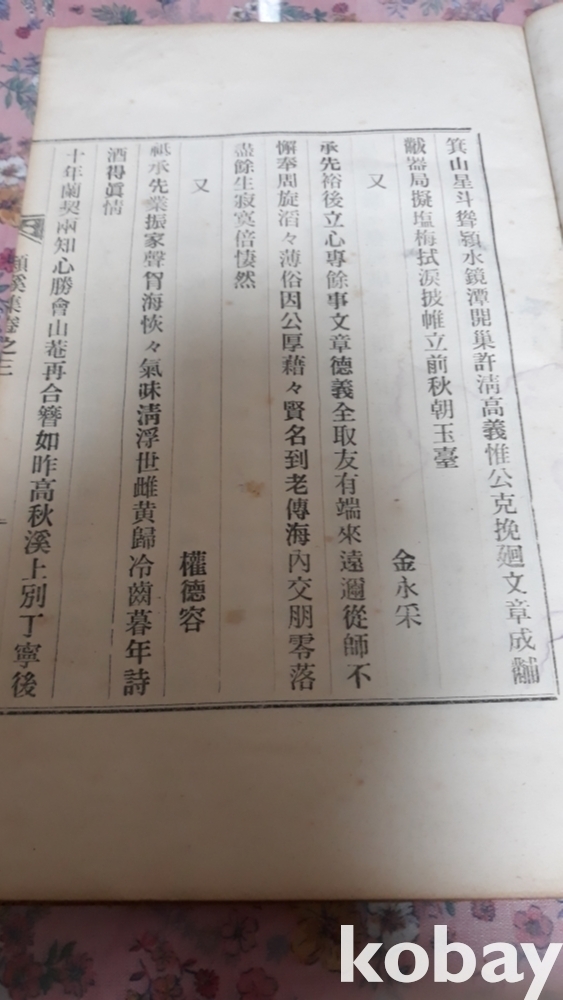 箕山星斗聳潁水鏡潭開巢許淸高義惟公克挽廻文章成黼
黻器局擬塩梅拭淚披帷立前秋朝玉臺
又
金永采
承先裕後立心專餘事文章德義全取友有端來遠邇從師不
懈奉周旋滔々薄俗因公厚藉々賢名到老傳海內交朋零落
盡餘生寂寞倍悽然
又
權德容
祗承先業振家聲胷海恢々氣味淸浮世雌黃歸冷齒暮年詩
酒得眞情
十年蘭契兩知心勝會山菴再合簪如昨高秋溪上別丁寧後
潁溪集卷之三
kobay